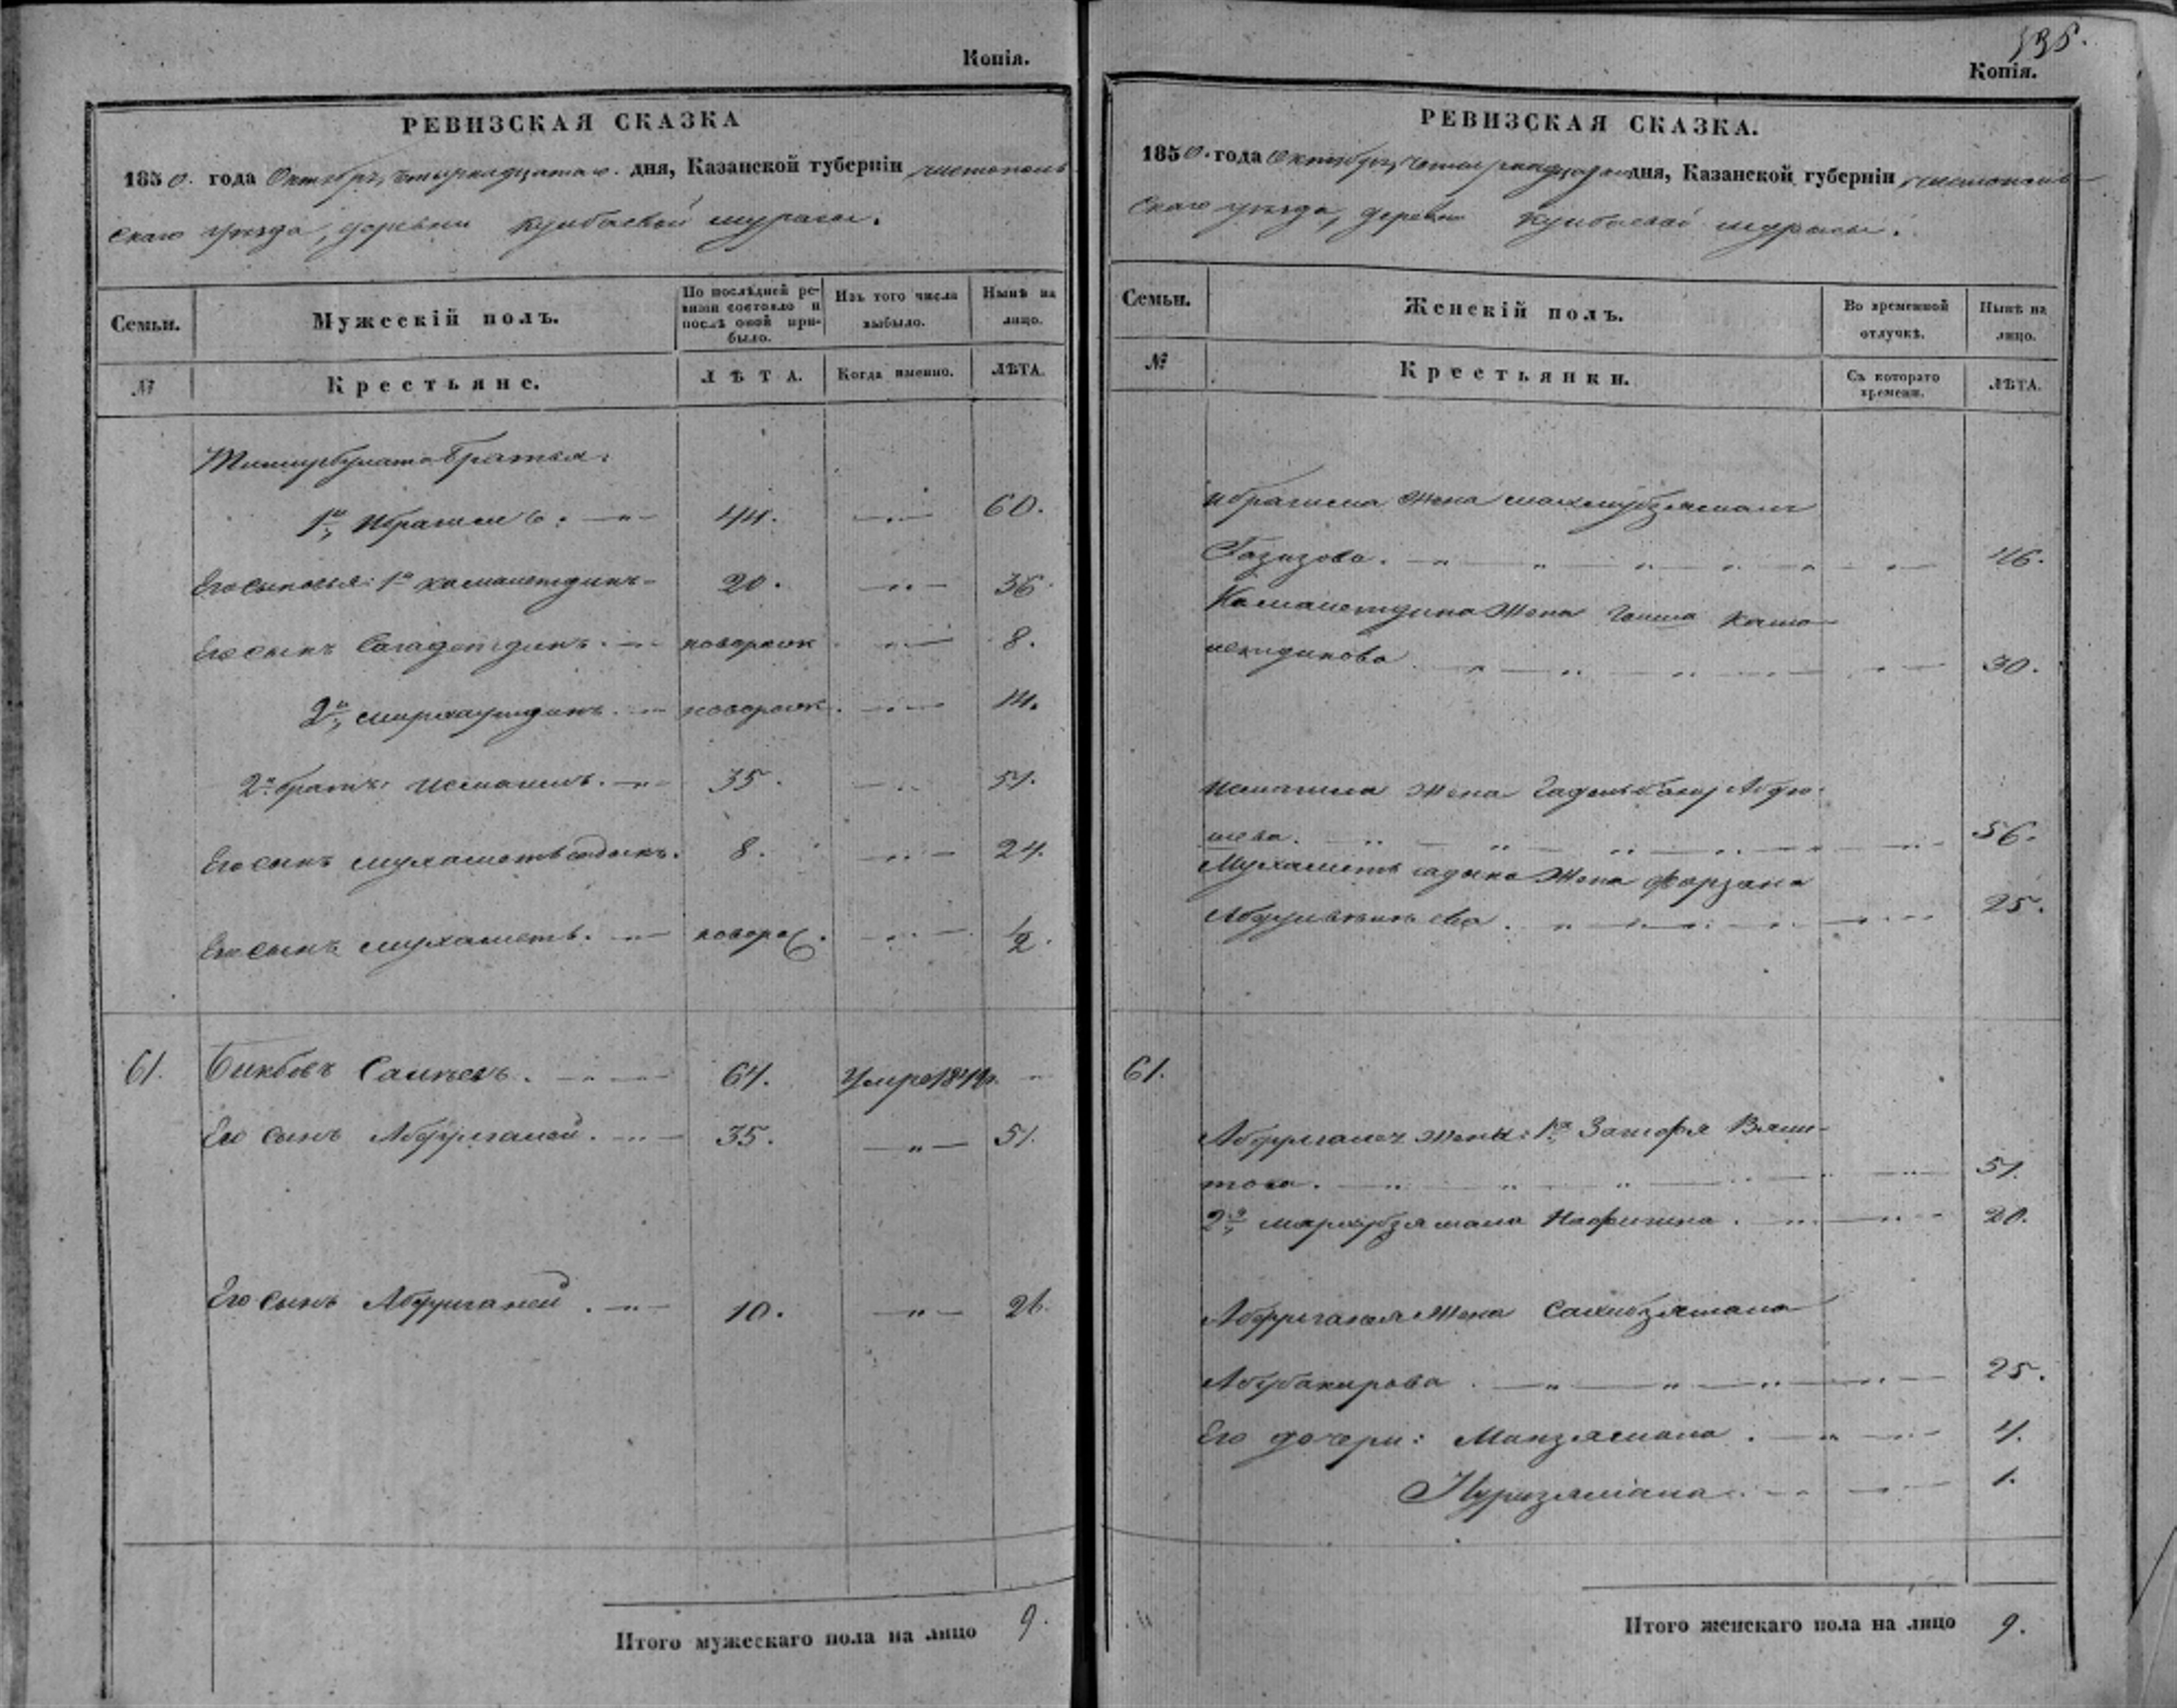 Копія.
РЕВИЗСКАЯ СКАЗКА
1850. года Октября, четырнадцатаго. дня, Казанской губерніи чистополь
скаго уѣзда, деревни Кутбаевой
Семьи.
Мужескій полъ.
По послѣдней ре-
визіи состояло и
послѣ оной при-
было.
Изъ того числа
выбыло.
Нынѣ на
лицо.
№
Крестьяне.
ЛѢТА.
Когда именно.
ЛѢТА.
Тимирбулата братья:
1й, Ибрагимъ. 44. 60.
Его сыновья: 1й Камалетдинъ 20. 36
Его сынъ Сагадетдинъ. новорожд. 8.
2й, новорожд. 14.
2й братъ: Исмагилъ. 35. 51.
Его сынъ Мухаметь садыкъ. 8. 24.
Его сынъ Мухаметь. новорож. 1/2.
61. Бикбовъ 64. Умре 184
Его сынъ Абдулгалей. 35. 51.
Его сынъ Абдулганей. 10. 26.
Итого мужескаго пола на лицо 9.
Копія.
РЕВИЗСКАЯ СКАЗКА.
1850. года Октября, четырнадцатаго дня, Казанской губерніи чистополь
скаго уѣзда, деревни Кутбаевой
Семьи.
Женскій полъ.
Во временной
отлучкѣ.
Нынѣ на
лицо.
№
Крестьянки.
Съ котораго
времени.
ЛѢТА.
Ибрагима Жена
Газизова. 46.
Камалетдина Жена Гайша Кама
летдинова 30.
Исмагила Жена Абдю-
шева. 56.
Мухаметь садыка Жена Фарзана
25.
61.
Абдулгалея жены: 1я Загофя Вяши-
това. 51.
2я, Нафикина. 20.
Абдулганея Жена Сахибзямала
Абубакирова. 25.
Его дочери: Манзямала. 4.
Нуризямала. 1.
Итого женскаго пола на лицо 9.